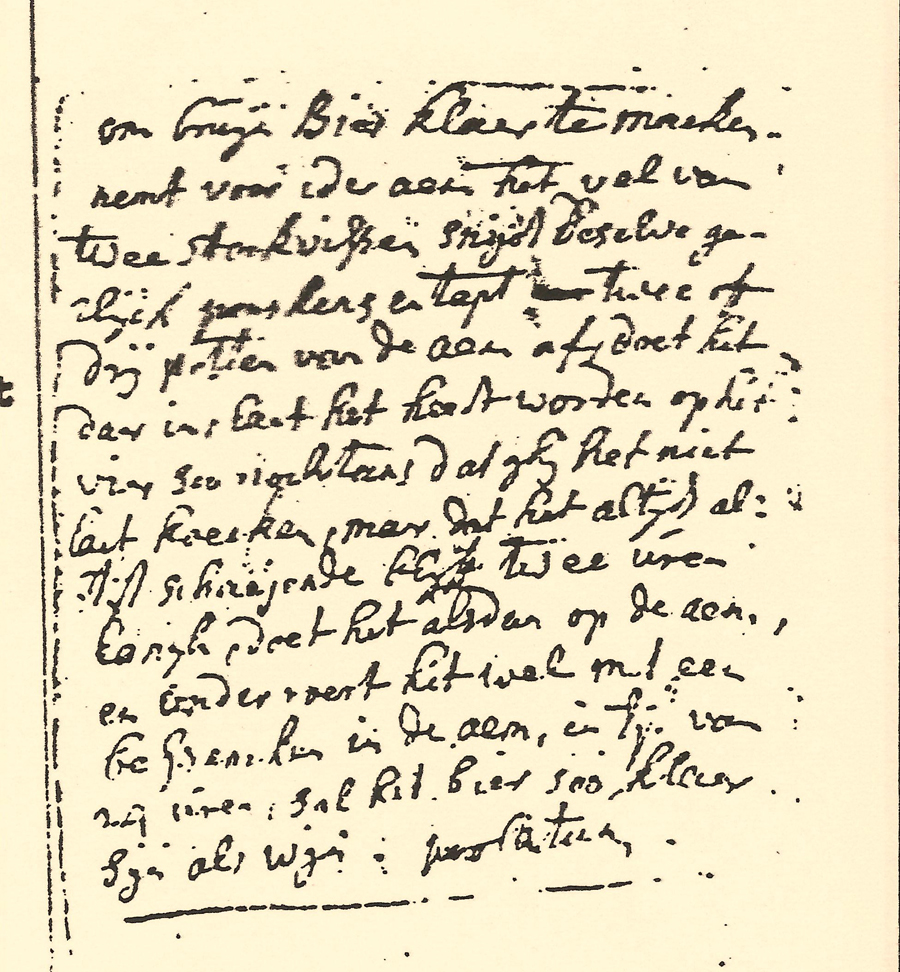 om bruijn Bier klaer te maeken
nemt voor ider aem het vel van
twee stockvissen snijdt deselve ge-
lijck en tapt twee of
drij potten van de aem af, doet het
daer in, laet het heedt worden op het
vier soo nochtans dat ghij het niet
laet koecken, maer dat het altijdt al:
tijdt twee uren
langh, doet het alsdan op de aem,
en onder roert het wel met een
in de aem, in tijdt van
uren, sal het bier soo klaer
sijn als wijn : probatum